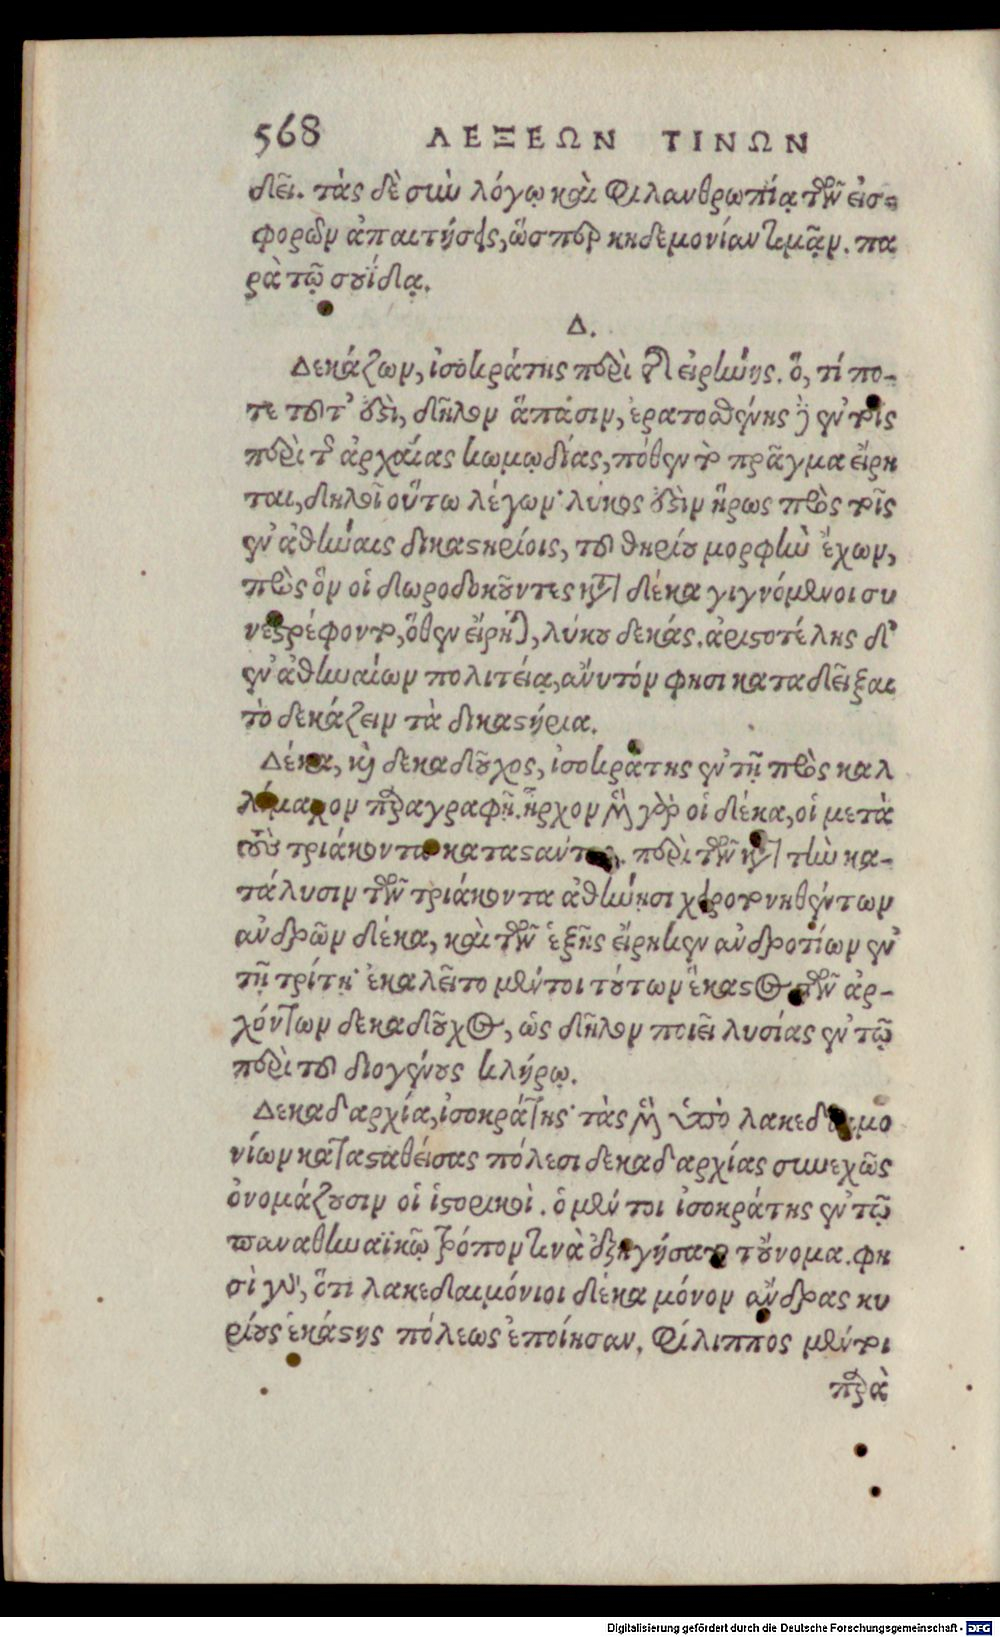 568 ΛΕΞΕΩΝ ΤΙΝΩΝ
δεῖ. τὰς δὲ σὺν λόγῳ καὶ φιλανθρωπίᾳ τῶν εἰσ-
φορῶν ἀπαιτήσεις, ὥσπερ κηδεμονίαν τιμᾷν. πα
ρὰ τῷ σουΐδᾳ.
Δ.
Δεκάζων, ἰσοκράτης περὶ τῆς εἰρήνης. ὅ, τί πο-
τε τοῦτ' ὅστὶ, δῆλον ἅπάσιν, ἐρατοσθένης δὲ ἐν τοῖς
περὶ τῆς ἀρχαίας κωμῳδίας, πόθεν τὸ πρᾶγμα εἴρη
ται, δηλοῖ οὕτω λέγων· λύκος ὅστὶν ἥρως πρὸς τοῖς
ἐν ἀθήναις δικαστηρίοις, τοῦ θηρίου μορφὴν ἔχων,
πρὸς ὃν οἱ δωροδοκοῦντες κατὰ δέκα γιγνόμενοι συ
νεστρέφοντο, ὅθεν εἴρηται, λύκου δεκάς. ἀριστοτέλης δ'
ἐν ἀθηναίων πολιτείᾳ, ἄνυτόν φησι καταδεῖξαι
τὸ δεκάζειν τὰ δικαστήρια.
Δέκα, καὶ δεκαδοῦχος, ἰσοκράτης ἐν τῇ πρὸς καλ
λίμαχον παραγραφῇ. ἦρχον μὲν γὰρ οἱ δέκα, οἱ μετὰ
τοὺς τριάκοντα καταστάντες. περὶ τῶν μετὰ τὴν κα-
τάλυσιν τῶν τριάκοντα ἀθήνησι χειροτονηθέντων
ἀνδρῶν δέκα, καὶ τῶν ἑξῆς εἴρηκεν ἀνδροτίων ἐν
τῇ τρίτῃ· ἐκαλεῖτο μέντοι τούτων ἕκαστος τῶν ἀρ-
χόντων δεκαδοῦχος, ὡς δῆλον ποιεῖ λυσίας ἐν τῷ
περὶ τοῦ διογένους κλήρῳ.
Δεκαδαρχία, ἰσοκράτης· τὰς μὲν ὑπὸ λακεδαιμο
νίων κατασταθείσας πόλεσι δεκαδαρχίας συνεχῶς
ὀνομάζουσιν οἱ ἱστορικοὶ. ὁ μέντοι ἰσοκράτης ἐν τῷ
παναθηναϊκῷ τρόπον τινὰ ἐξηγήσατο τοὔνομα. φη
σὶ γοῦν, ὅτι λακεδαιμόνιοι δέκα μόνον ἄνδρας κυ
ρίους ἑκάστης πόλεως ἐποίησαν. φίλιππος μέντοι
παρὰ
Digitalisierung gefördert durch die Deutsche Forschungsgemeinschaft - DFG